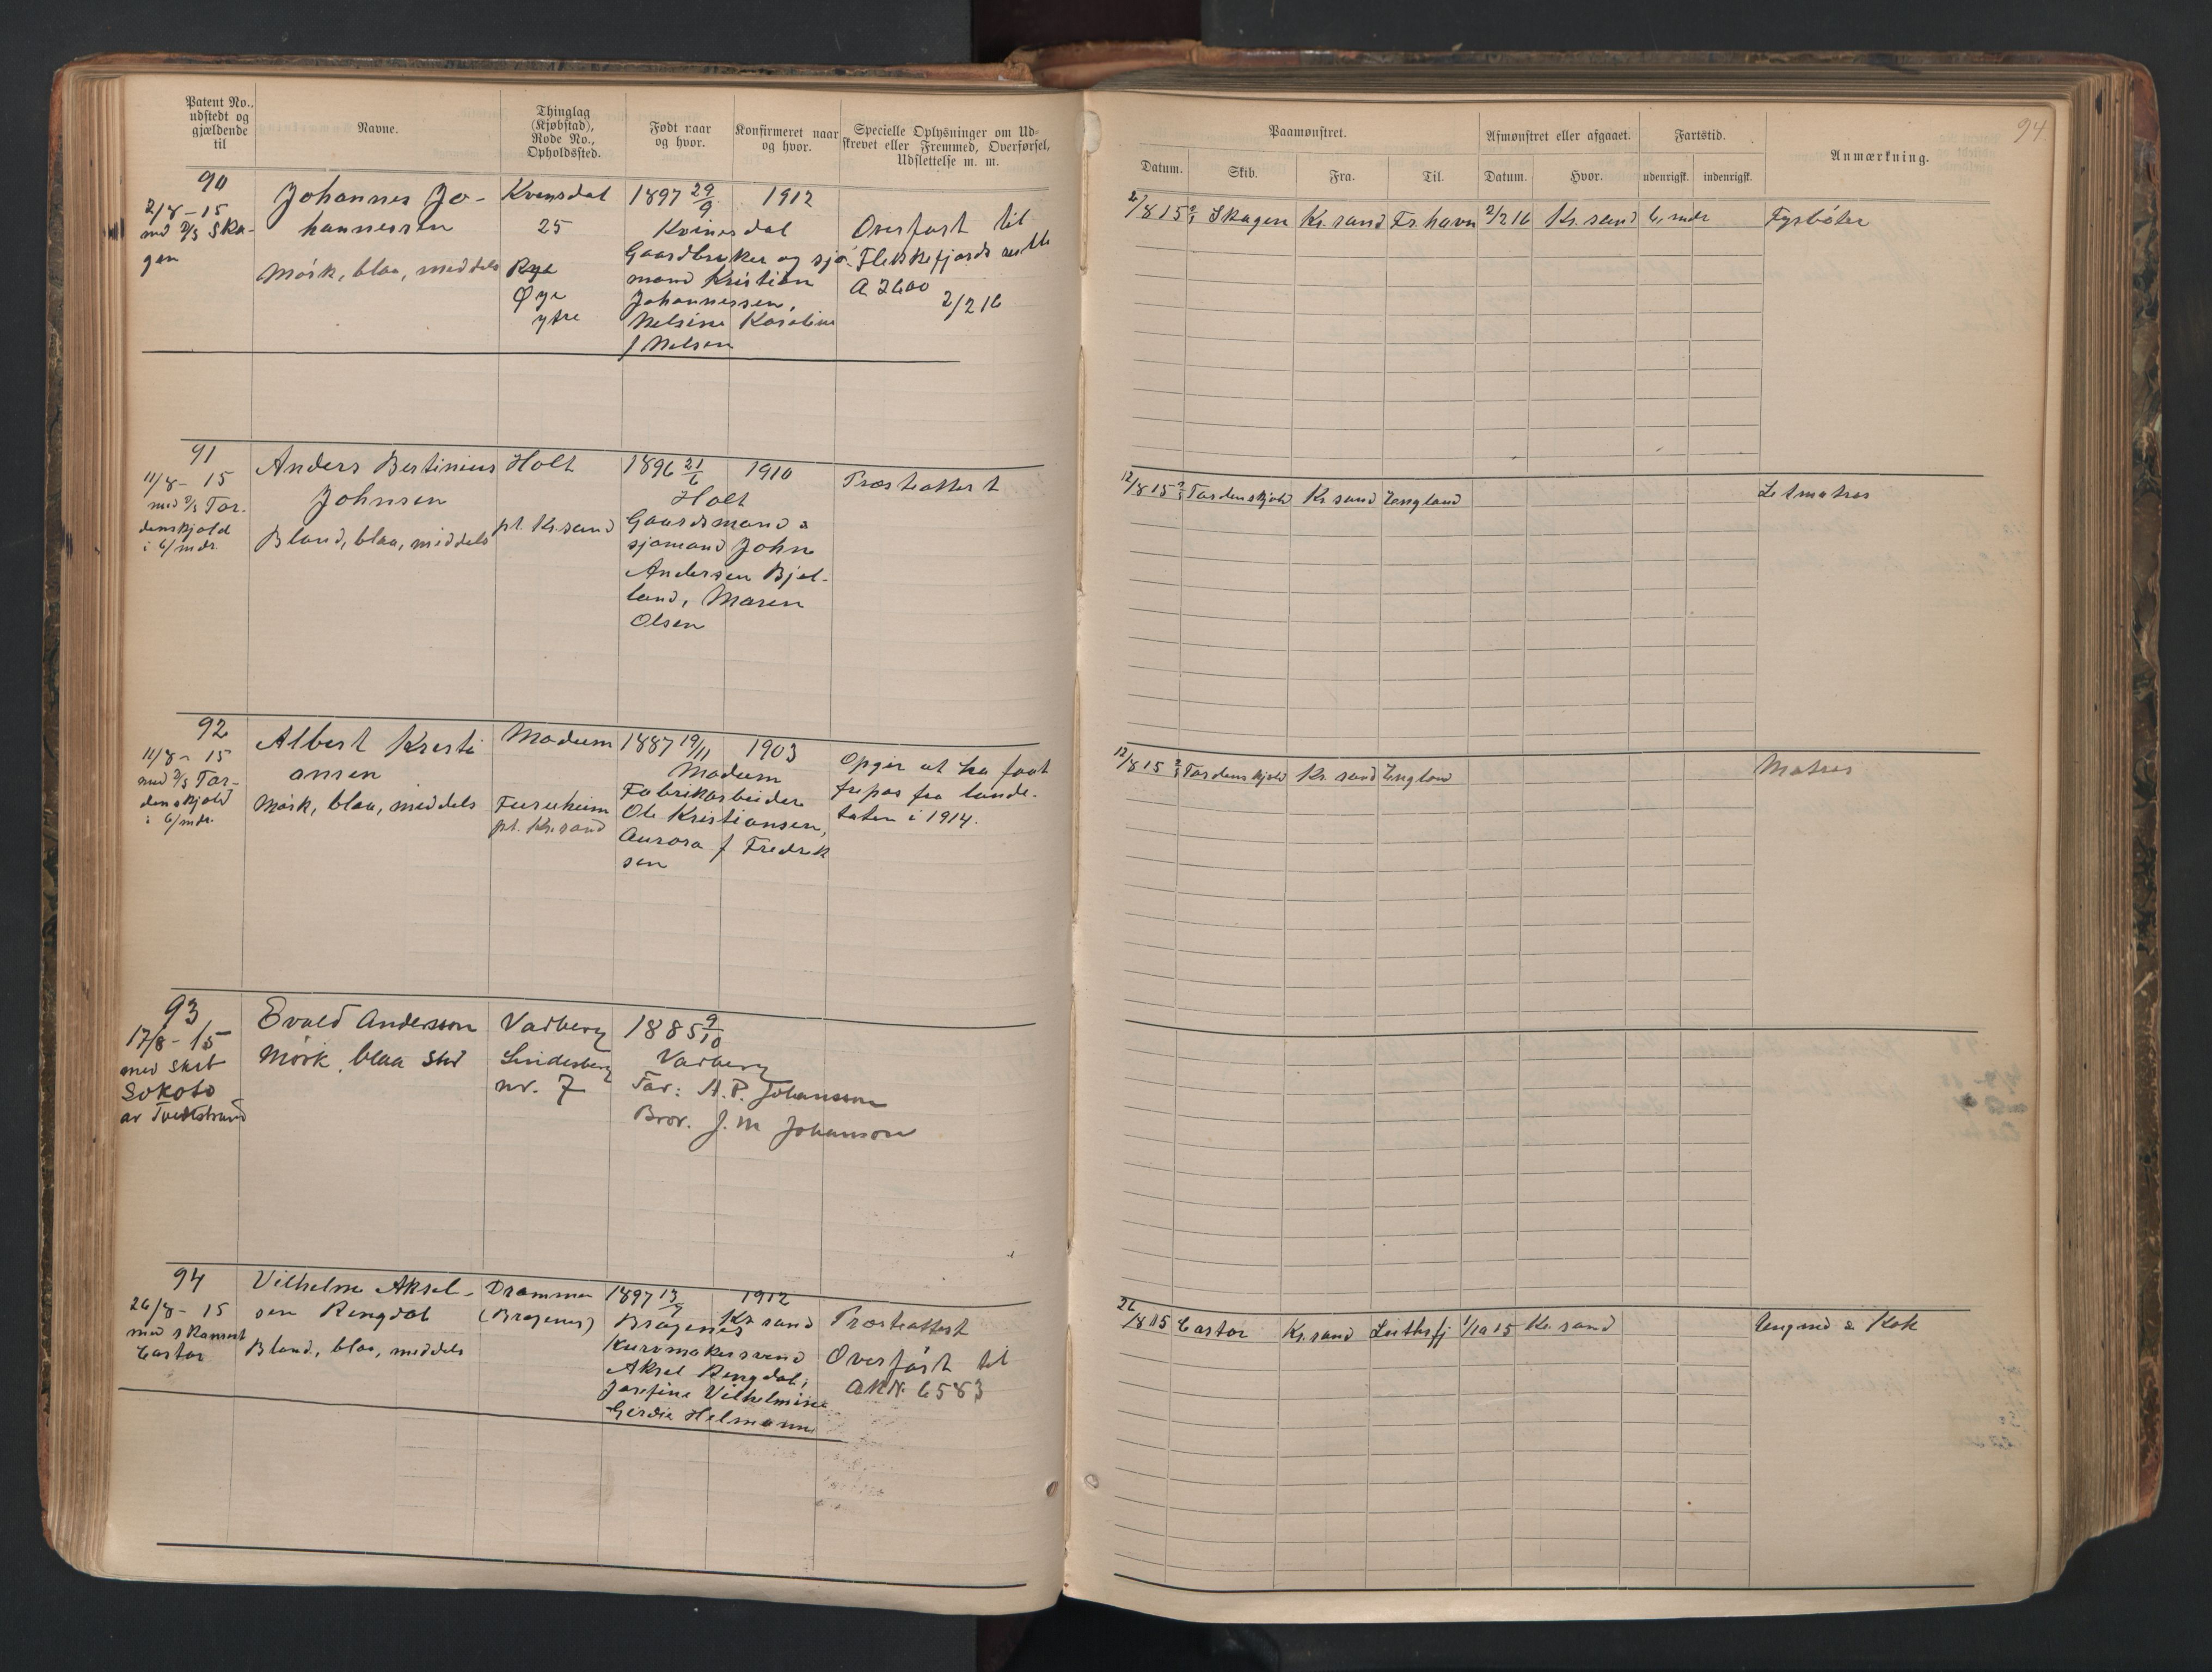 Patent No., udstedt og gjældende til
Navne.
Thinglag (Kjøbstad), Rode No., Opholdssted.
Født naar og hvor.
Konfirmeret naar og hvor.
Specielle Oplysninger om Udskrevet eller Fremmed, Overførsel, Udslettelse m. m.
Paamønstret.
Afmønstret eller afgaaet.
Fartstid.
Anmærkning.
94
Datum.
Skib.
Fra.
Til.
Datum.
Hvor.
udenrigsk.
indenrigsk.
90
2/8-15
med D/S Ska-
gen
Johannes Jo-
hannessen
Mörk, blaa, middels
Kvinesdal
25
Øye
ytre
1897 29/9
1912
Kvinesdal
Gaardbruker og sjö-
mand Kristian
Johannessen,
Nelsine Karoline
f Nelsen
Overfört til
Flekkefjords rulle
A 2600
2/2 16
2/8 15 D/S Skagen Kr.sand Fr.havn 2/2 16 Kr.sand 6 mdr Fyrböter
91
11/8-15
med D/S Tor-
denskjold
i 6/mdr.
Anders Bertinius
Johnsen
Blond, blaa, middels
Holt
pt. Kr.sand
1896 21/6
1910
Holt
Gaardsmand &
sjömand John
Andersen Bjel-
land, Maren
Olsen
Præsteattest
12/8 15 D/S Tordenskjold Kr.sand England Letmatros
92
11/8-15
med D/S Tor-
denskjold
i 6/mdr.
Albert Kristi
ansen
Mörk, blaa, middels
Modum
Furuheim
pt. Kr.sand
1887 19/11
1903
Modum
Fabrikarbeider
Ole Kristiansen,
Aurora f Fredrik
sen
Opgir at ha faat
fripas fra lande-
taten i 1914.
12/8 15 D/S Tordenskjold Kr.sand England Matros
93
17/8-15
med Skib
Sokoto
av Tvedestrand
Evald Andersson
Mörk, blaa
Varberg
Lindesberg
nr. 7
1885 9/10
Varberg
Far: A. P. Johansson
Bror. J. M Johanson
94
26/8-15
med skonnert
Castor
Vilhelm Aksel-
sen Rengdal
Blond, blaa, middels
Drammen
(Bragenes)
1897 13/9
1912
Bragenes
Kr.sand
Kurvmakersvend
Aksel Rengdal,
Josefine Vilhelmine
Gerdie Helmann
Præsteattest
Overfört til
A Kr. 6583
26/8 15 Castor Kr.sand 1/10 15 Kr.sand Ungmd & Kok